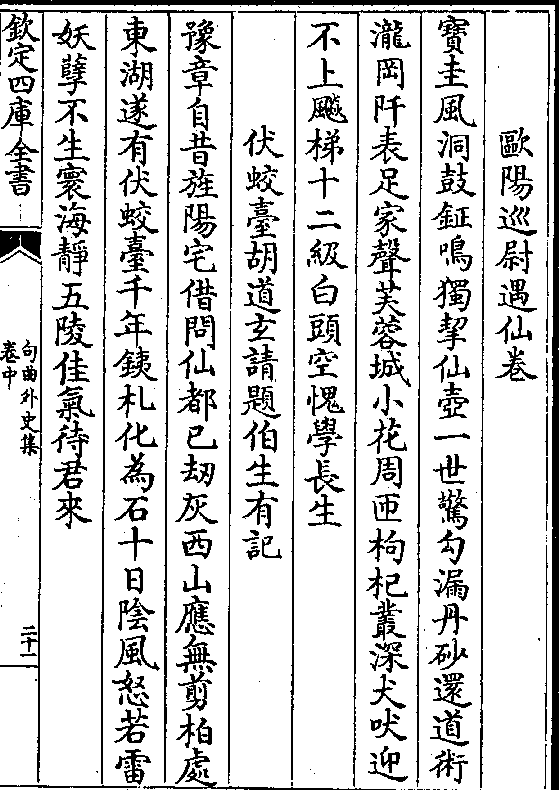 歐陽巡尉遇仙卷
寶圭風洞鼓鉦鳴獨挈仙壺一世驚勾漏丹砂還道術
瀧岡阡表足家聲芙蓉城小花周匝枸杞叢深犬吠迎
不上飈梯十二級白頭空愧學長生
伏蛟臺胡道玄請題伯生有記
豫章自昔旌陽宅借問仙都已劫灰西山應無剪柏處
東湖遂有伏蛟臺千年銕札化為石十日陰風怒若雷
妖孽不生寰海靜五陵佳氣待君來
欽定四庫全書
句曲外史集
卷中
二十一